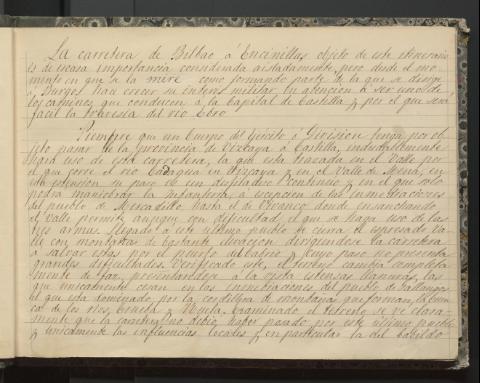 La carretera de Bilbao á Encinillas objeto de este itinerario
es de escasa importancia considerada aisladamente, pero desde el mo-
mento en que se la mire como formando parte de la que se dirige
á Burgos hace crecer su interés militar en atención á ser uno de
los caminos que conducen á la Capital de Castilla y por el que será
facil la travesía del rio Ebro.
Siempre que un Cuerpo de Ejército ó División tenga por ob-
jeto pasar de la provincia de Vizcaya á Castilla, indudablemente
hará uso de esta carretera, la que está trazada en el Valle por
el que corre el rio Cadagua en Vizcaya y en el Valle de Mena, en
su extensión su paso es un desfiladero continuo y en el que solo
podrá maniobrar la Infantería, á escepcion de las inmediaciones
del pueblo de Mercadillo hasta el de donde ensanchando
el Valle permite aunque con dificultad, el que se haga uso de las
tres armas. Llegado á este ultimo pueblo se cierra el espresado Va-
lle con montañas de bastante elevacion dirigiendose la carretera
á salvar estas por el puerto del Cabrio y cuyo paso no presenta
grandes dificultades. Verificado este, el terreno cambia completa-
mente de faz, presentandose á la vista estensas llanuras, las
que unicamente cesan en las inmediaciones del pueblo de
el que está dominado, por la cordillera de montañas que forman, la cuen-
ca de los rios, Trueba y Nela. Examinado el terreno se ve clara-
mente que la carretera no debió haber pasado por este ultimo pueblo
y unicamente las influencias locales y en particular la del Cabildo